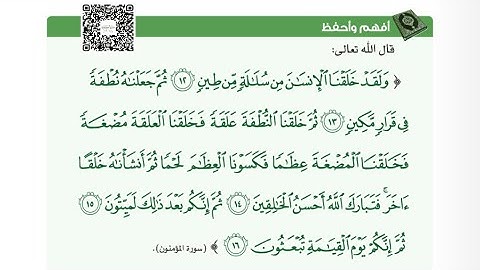 أفهم وأحفظ
قال الله تعالى:
﴿ وَلَقَدْ خَلَقْنَا الْإِنسَانَ مِن سُلَالَةٍ مِّن طِينٍ ١٢ ثُمَّ جَعَلْنَاهُ نُطْفَةً
فِي قَرَارٍ مَّكِينٍ ١٣ ثُمَّ خَلَقْنَا النُّطْفَةَ عَلَقَةً فَخَلَقْنَا الْعَلَقَةَ مُضْغَةً
فَخَلَقْنَا الْمُضْغَةَ عِظَامًا فَكَسَوْنَا الْعِظَامَ لَحْمًا ثُمَّ أَنشَأْنَاهُ خَلْقًا
ءَاخَرَ ۚ فَتَبَارَكَ اللَّهُ أَحْسَنُ الْخَالِقِينَ ١٤ ثُمَّ إِنَّكُم بَعْدَ ذَٰلِكَ لَمَيِّتُونَ ١٥
ثُمَّ إِنَّكُمْ يَوْمَ الْقِيَامَةِ تُبْعَثُونَ ١٦ ﴾ (سورة المؤمنون).